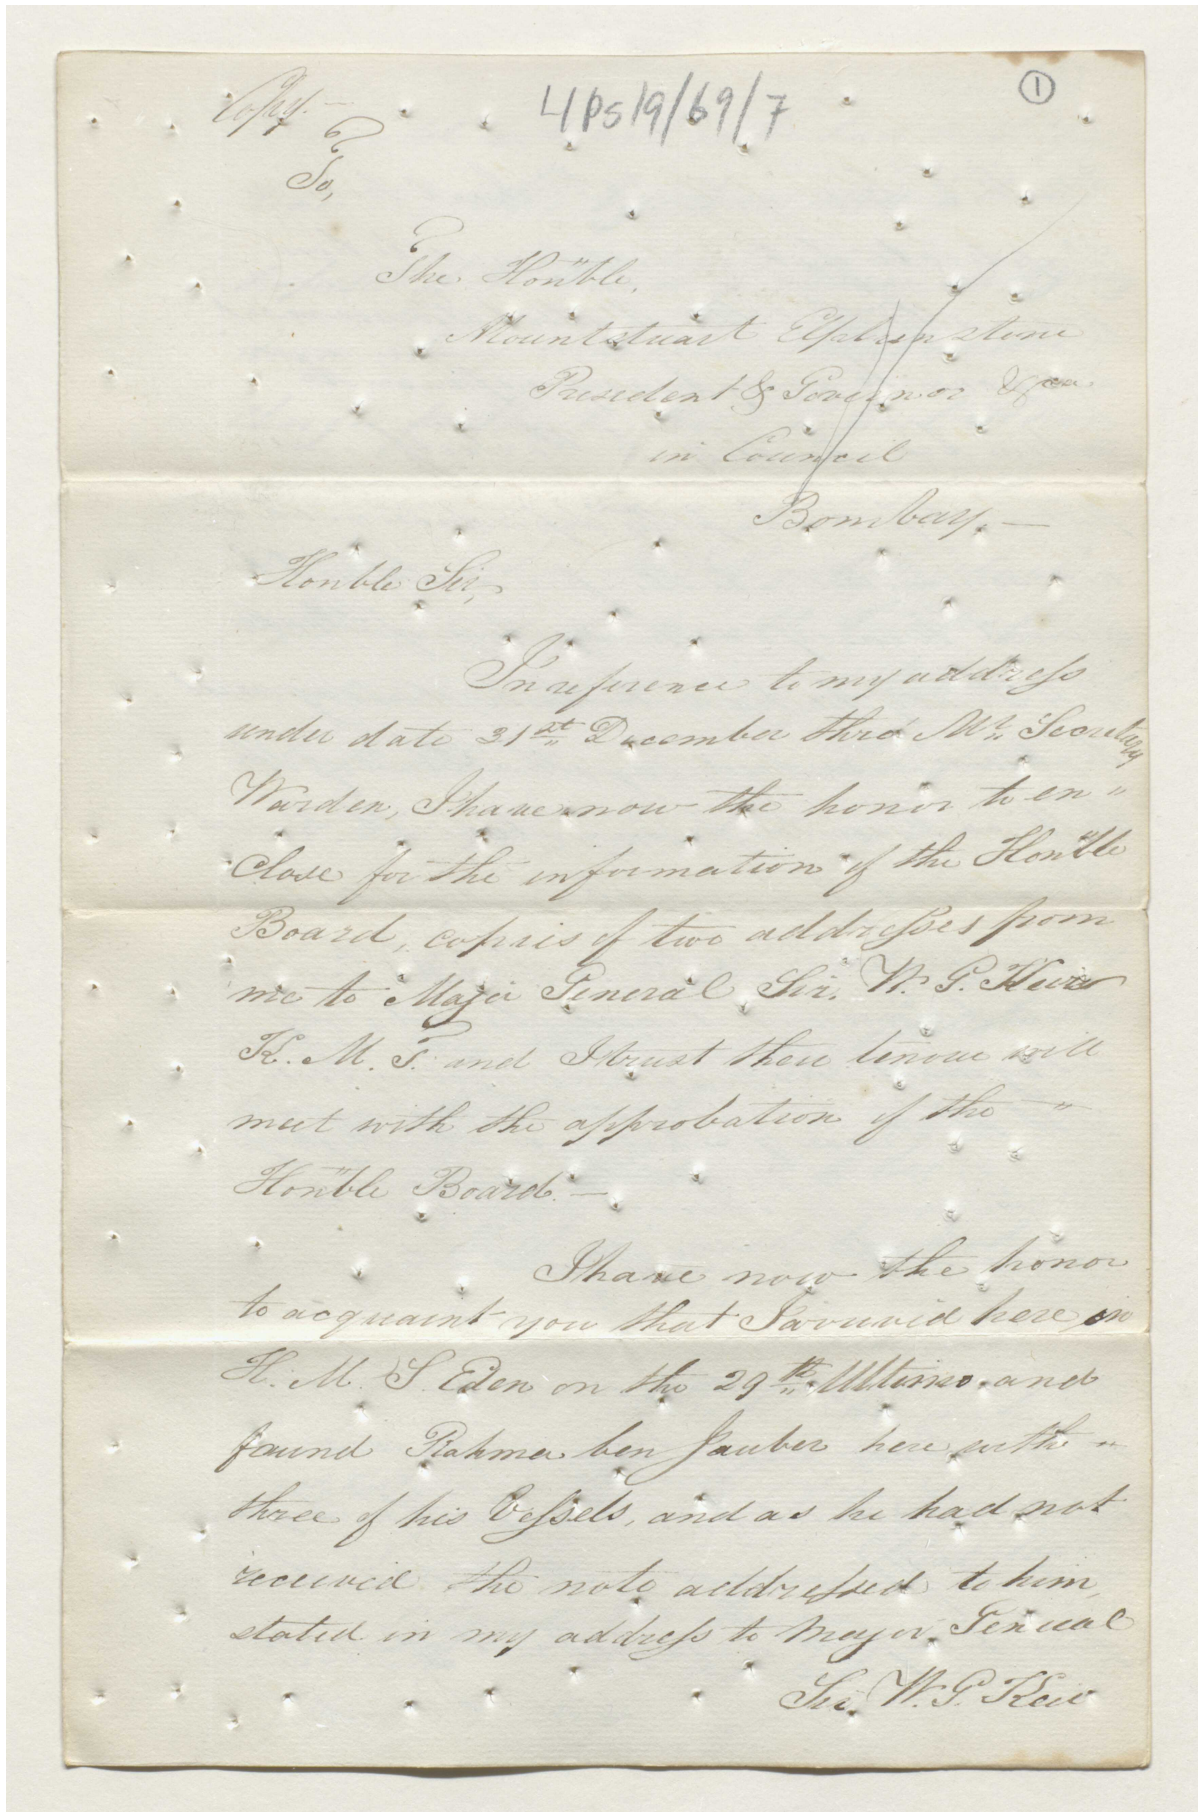 Copy.—
L/PS/9/69/7
1
To,
The Hon"ble,
Mountstuart Elphinstone
President & Governor &ca
in Council
Bombay.—
Honble Sir,
In reference to my address
under date 31st December thro' Mr. Secretary
Warden, I have now the honor to en"
close for the information of the Hon"ble
Board, copies of two addresses from
me to Major General Sir. W. G. Keir
K. M. T. and I trust their tenour will
meet with the approbation of the "
Hon"ble Board.—
I have now the honor
to acquaint you that I arrived here in
H. M. S. Eden on the 29th Ultimo and
found Rahma ben Jauber here with "
three of his Vessels, and as he had not
received the note addressed to him,
stated in my address to Major General
Sir. W. G. Keir